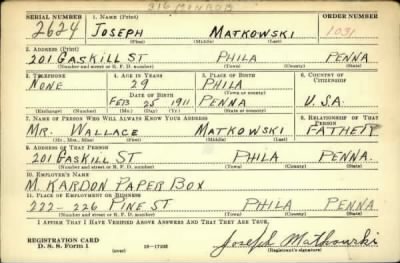 316 MONROE
SERIAL NUMBER 1. NAME (Print) ORDER NUMBER
2624 JOSEPH MATKOWSKI 1031
(First) (Middle) (Last)
2. ADDRESS (Print)
201 GASKILL ST PHILA PENNA
(Number and street or R. F. D. number) (Town) (County) (State)
3. TELEPHONE 4. AGE IN YEARS 5. PLACE OF BIRTH 6. COUNTRY OF CITIZENSHIP
NONE 29 PHILA
DATE OF BIRTH (Town or county)
FEB 25 1911 PENNA U.S.A.
(Exchange) (Number) (Mo.) (Day) (Yr.) (State or country)
7. NAME OF PERSON WHO WILL ALWAYS KNOW YOUR ADDRESS 8. RELATIONSHIP OF THAT PERSON
MR. WALLACE MATKOWSKI FATHER
(Mr., Mrs., Miss) (First) (Middle) (Last)
9. ADDRESS OF THAT PERSON
201 GASKILL ST PHILA PENNA.
(Number and street or R. F. D. number) (Town) (County) (State)
10. EMPLOYER'S NAME
M. KARDON PAPER BOX
11. PLACE OF EMPLOYMENT OR BUSINESS
222-226 PINE ST PHILA PENNA
(Number and street or R. F. D. number) (Town) (County) (State)
I AFFIRM THAT I HAVE VERIFIED ABOVE ANSWERS AND THAT THEY ARE TRUE.
REGISTRATION CARD Joseph Matkowski
D. S. S. Form 1 (over) 16-17105 (Registrant's signature)